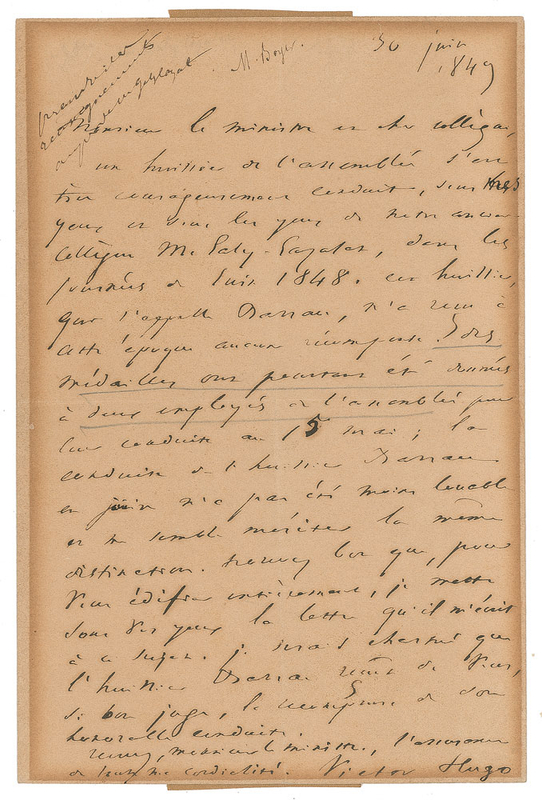 prendre des
renseignements
auprès de M. Galy-Cazalat
M. Boyer.
30 juin
1849
Monsieur le ministre et cher collègue,
un huissier de l'assemblée s'est
très courageusement conduit, sous mes
yeux et sous les yeux de notre ancien
collègue M. Galy-Cazalat, dans les
journées de Juin 1848. cet huissier,
qui s'appelle Barrau, n'a reçu à
cette époque aucune récompense. Des
médailles ont pourtant été données
à deux employés de l'assemblée pour
leur conduite au 15 mai ; la
conduite de l'huissier Barrau
en juin n'a pas été moins louable
et me semble mériter la même
distinction. trouvez bon que, pour
vous édifier entièrement, je mette
sous vos yeux la lettre qu'il m'écrit
à ce sujet. je serais charmé que
l'huissier Barrau reçût de vous,
si bon juge, la récompense de son
honorable conduite.
recevez, monsieur le ministre, l'assurance
de toute ma cordialité. Victor Hugo